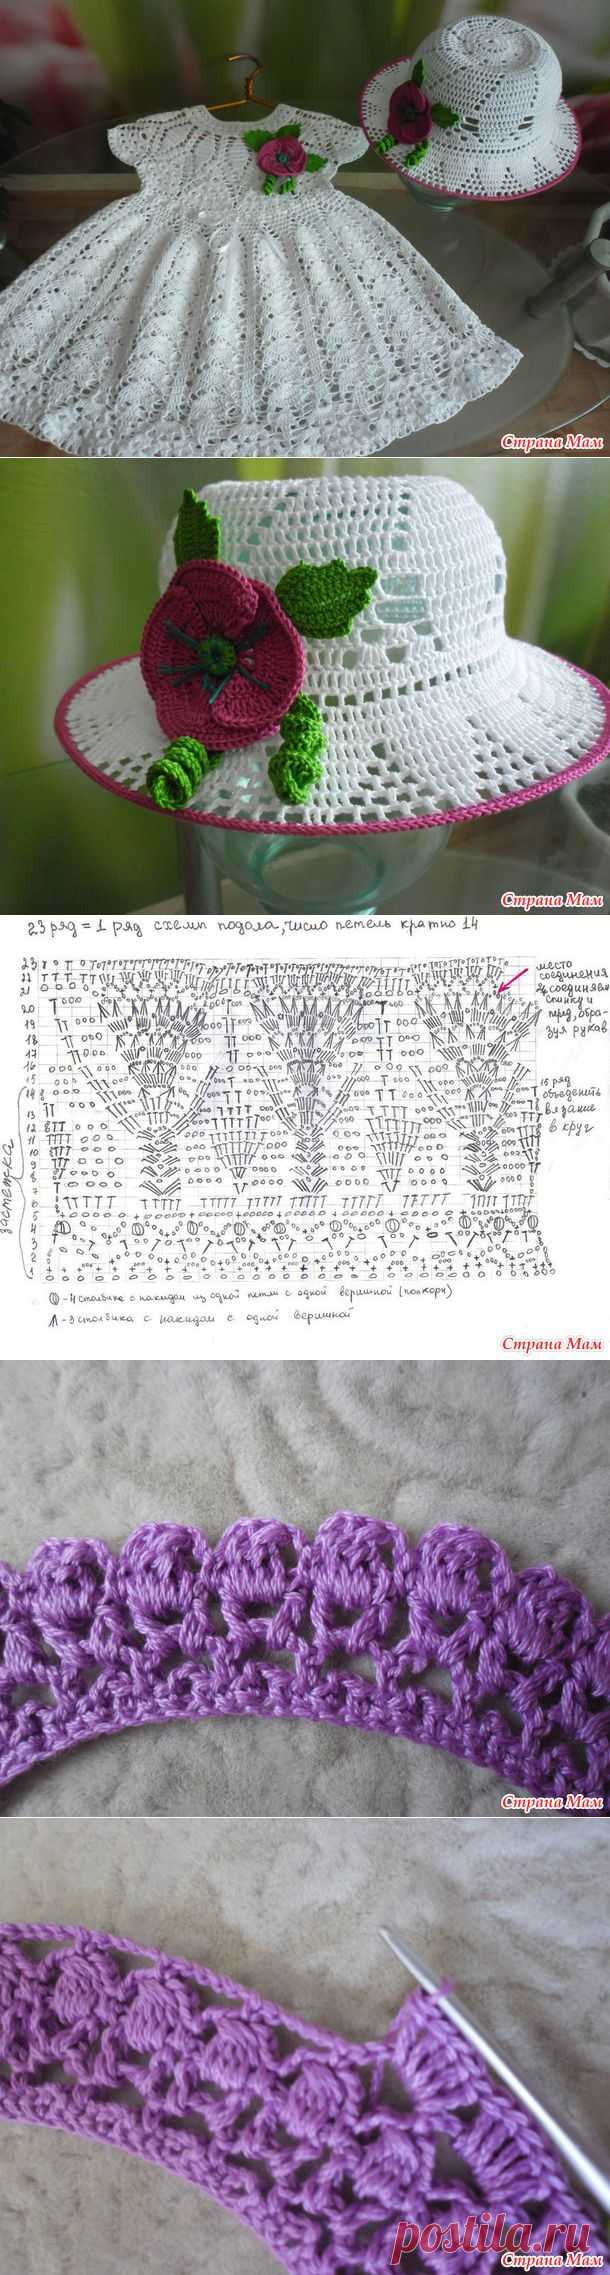 Страна Мам
Страна Мам
23 ряд = 1 ряд схемы подола, число петель кратно 14
место
соединения
соединяем
спинку и
перед, обра-
зуя рукав
15 ряд
объеденить
вязание
в круг
застежка
23
22
21
20
19
18
17
16
15
14
13
12
11
10
9
8
7
6
5
4
3
2
1
- 4 столбика с накидом из одной петли с одной вершиной (попкорн)
- 3 столбика с накидом с одной вершиной
Страна Мам
Страна Мам
postila.ru
Страна Мам